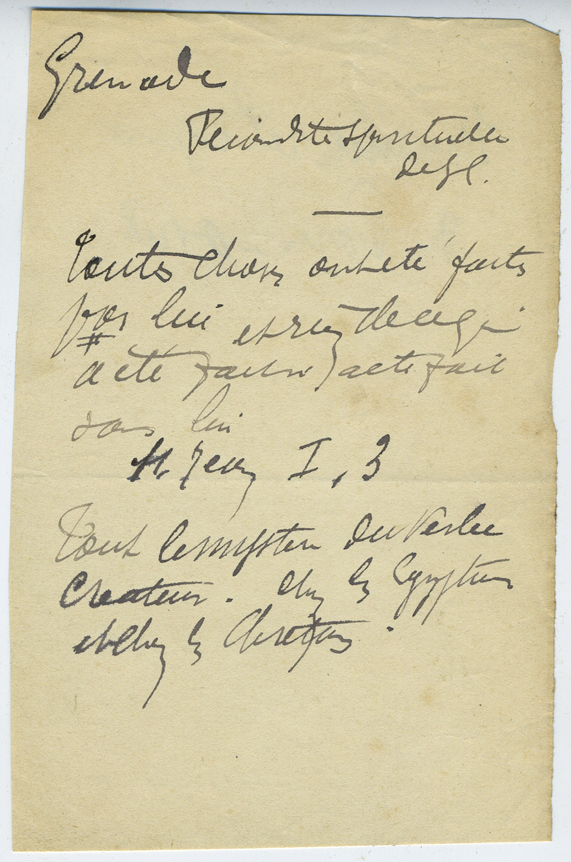 Grenade
Fécondité spirituelle
de
Toutes choses ont été faites
par lui et rien de ce qui
a été fait n'a été fait
sans lui
St Jean I, 3
Tout le mystère du Verbe
Créateur. Chez les Egyptiens
et chez les Chrétiens.